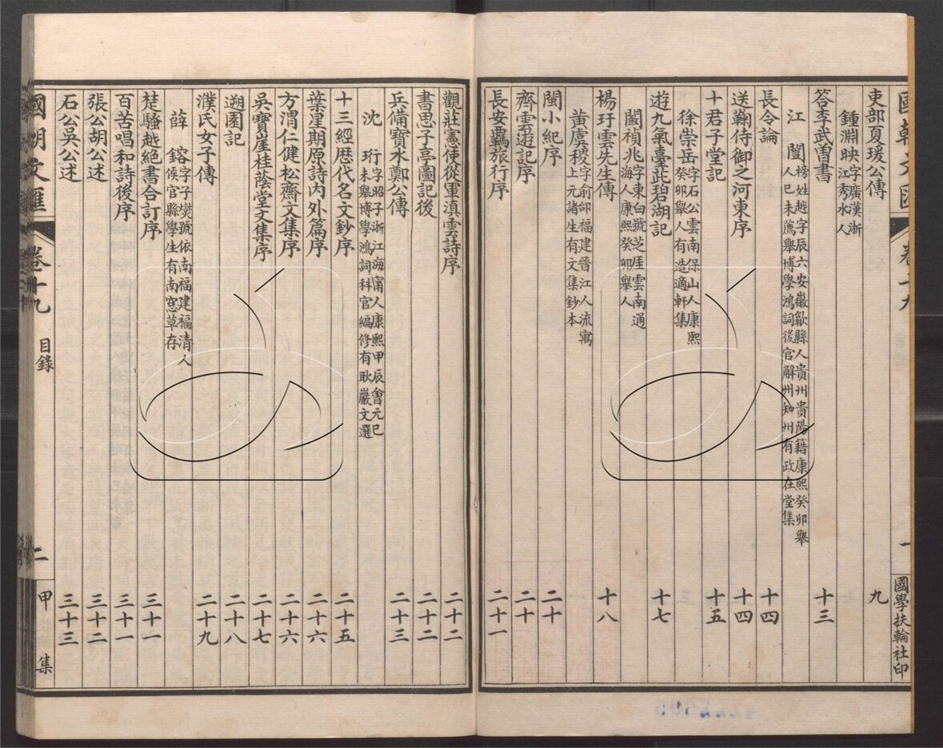 吏部夏瑗公傳 九
鍾淵映 字廣漢浙江秀水人
答李武曾書 十三
江闓 榜姓越字辰六安徽歙縣人貴州貴陽籍康熙癸卯舉人己未薦舉博學鴻詞後官解州知州有政在堂集
長令論 十四
送鞠侍御之河東序 十四
十君子堂記 十五
徐崇岳 字石公雲南保山人康熙癸卯舉人有造適軒集
遊九氣臺茈碧湖記 十七
闞禎兆 字東白號芝厓雲南通海人康熙癸卯舉人
楊玗雲先生傳 十八
黃虞稷 字俞邰福建晉江人流寓上元諸生有文集鈔本
閩小紀序 二十
齊雲遊記序 二十
長安羈旅行序 二十一
國學扶輪社印
觀莊憲使從軍滇雲詩序 二十二
書思子亭圖記後 二十二
兵備寶水鄭公傳 二十三
沈珩 字昭子浙江海甯人康熙甲辰會元己未舉博學鴻詞科官編修有耿巖文選
十三經歷代名文鈔序 二十五
葉星期原詩內外篇序 二十六
方渭仁健松齋文集序 二十六
吳寶崖桂蔭堂文集序 二十七
遡園記 二十八
濮氏女子傳 二十九
薛鎔 字子燮號依南福建福清人候官縣學生有南窻草存
楚騷越絕書合訂序 三十一
百苦唱和詩後序 三十一
張公胡公述 三十二
石公吳公述 三十三
國朝文匯 卷十九 目錄 二 甲集